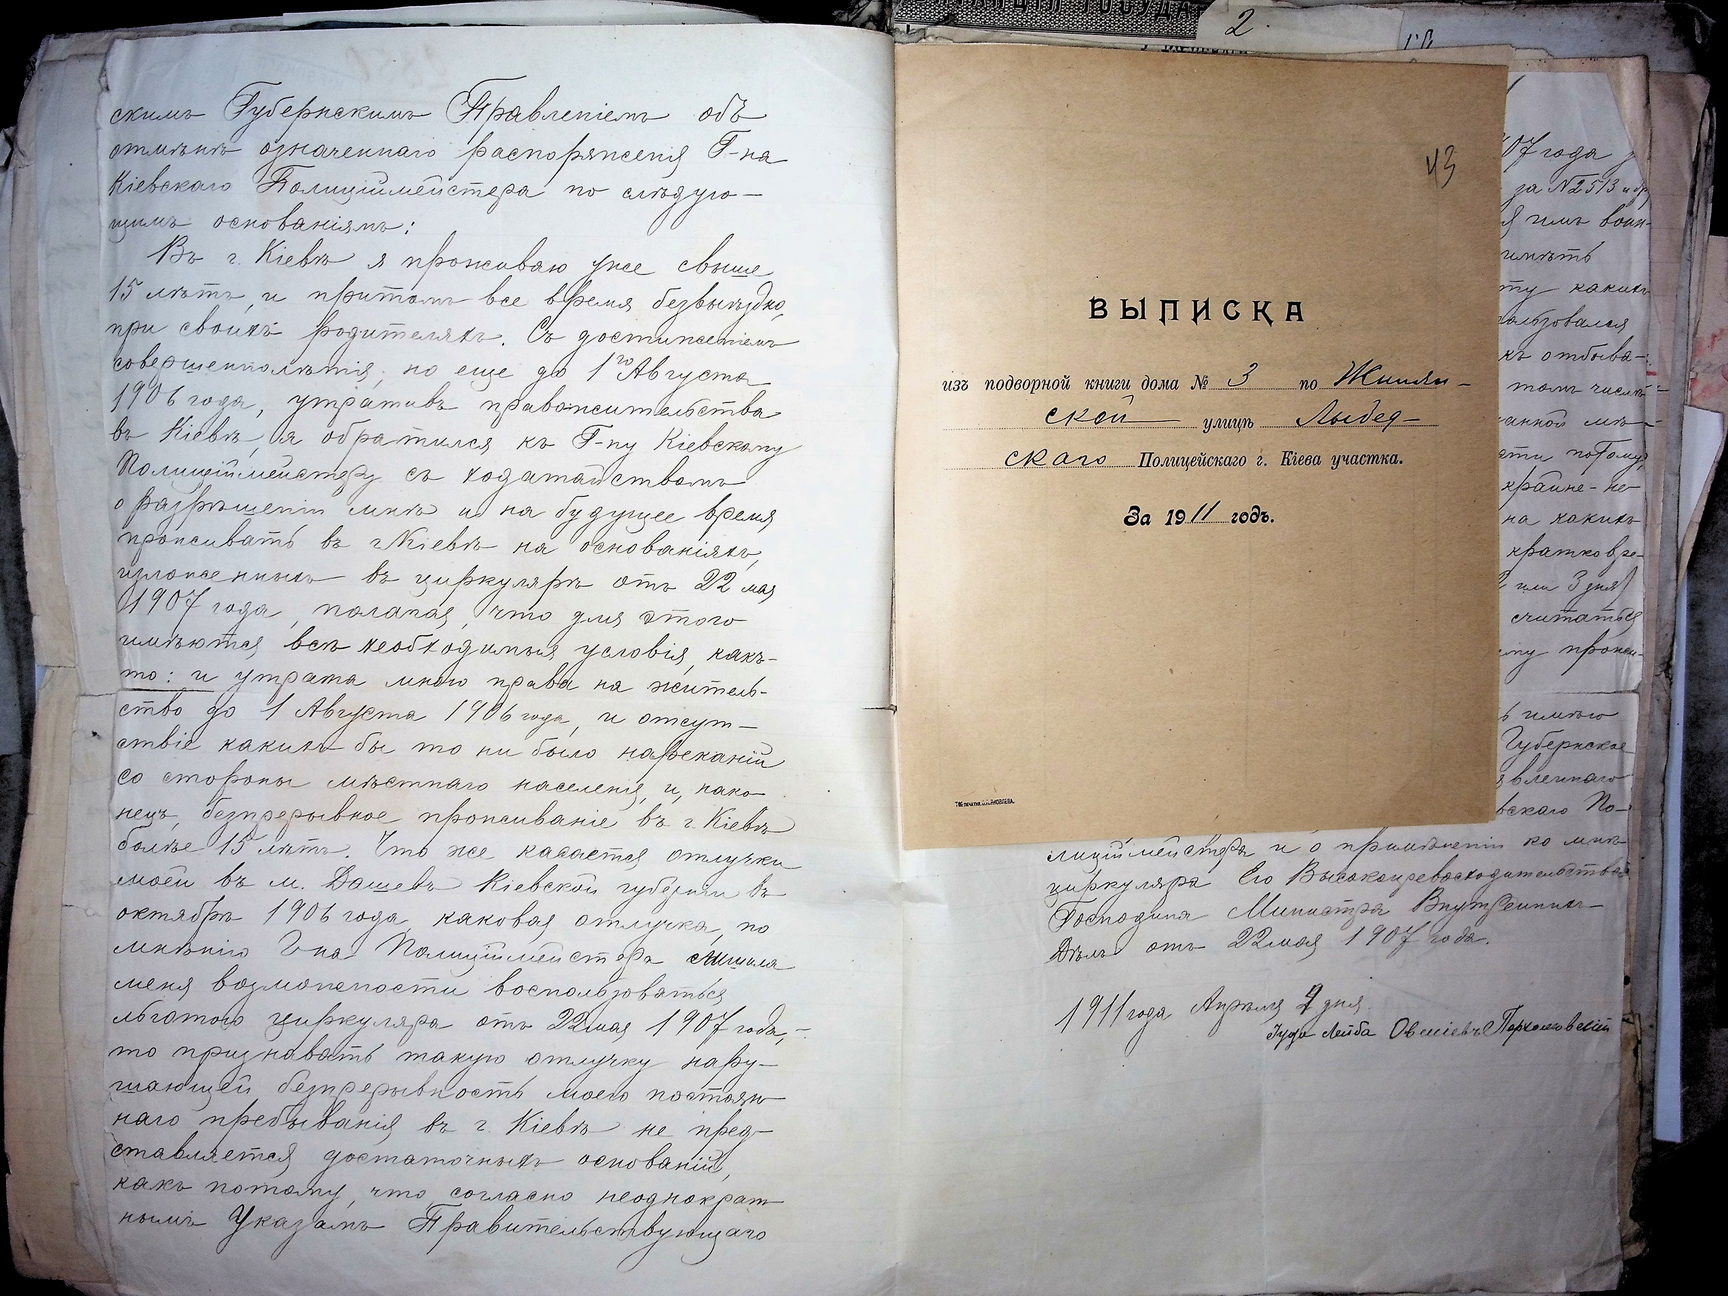 скимъ Губернскимъ Правленіемъ объ
отмѣнѣ означеннаго распоряженія Г-на
Кіевскаго Полиціймейстера по слѣдую-
щимъ основаніямъ:
Въ г. Кіевѣ я проживаю уже свыше
15 лѣтъ, и притомъ все время безвыѣздно,
при своихъ родителяхъ. Съ достиженіемъ
совершеннолѣтія, но еще до 1го Августа
1906 года, утративъ правожительства
въ Кіевѣ, я обратился къ Г-ну Кіевскому
Полиціймейстеру съ ходатайствомъ
о разрѣшеніи мнѣ и на будущее время
проживать въ г. Кіевѣ на основаніяхъ,
изложенныхъ въ циркулярѣ отъ 22 мая
1907 года, полагая, что для этого
имѣются всѣ необходимыя условія, какъ-
то: и утрата мною права на житель-
ство до 1 Августа 1906 года, и отсут-
ствіе какихъ бы то ни было нареканій
со стороны мѣстнаго населенія, и, нако-
нецъ, безпрерывное проживаніе въ г. Кіевѣ
болѣе 15 лѣтъ. Что же касается отлучки
моей въ м. Дашевъ Кіевской губерніи въ
октябрѣ 1906 года, каковая отлучка, по
мнѣнію Г-на Полиціймейстера лишила
меня возможности воспользоваться
льготою циркуляра отъ 22 мая 1907 года,-
то признавать такую отлучку нару-
шающей безпрерывность моего постоян-
наго пребыванія въ г. Кіевѣ не пред-
ставляется достаточныхъ основаній,
какъ потому, что согласно неоднократ-
нымъ Указамъ Правительствующаго
2
43
ВЫПИСКА
изъ подворной книги дома № 3 по Жилян-
ской улицѣ Лыбед-
скаго Полицейскаго г. Кіева участка.
За 1911 годъ.
07 года
за № 2513
имѣть
ту какихъ
ользовался
хъ отбыва-
томъ числѣ
анной мѣ-
сти потому,
крайне-не
на какихъ
кратковре-
2 или 3 дня)
считаться
му прожи-
ь имѣю
Губернское
явленнаго
вскаго По-
лиціймейстера и о примѣненіи ко мнѣ
циркуляра Его Высокопревосходительства
Господина Министра Внутреннихъ
Дѣлъ отъ 22 мая 1907 года.
1911 года Апрѣля 9 дня
Іуда Лейба Овшіевъ Пархомовскій